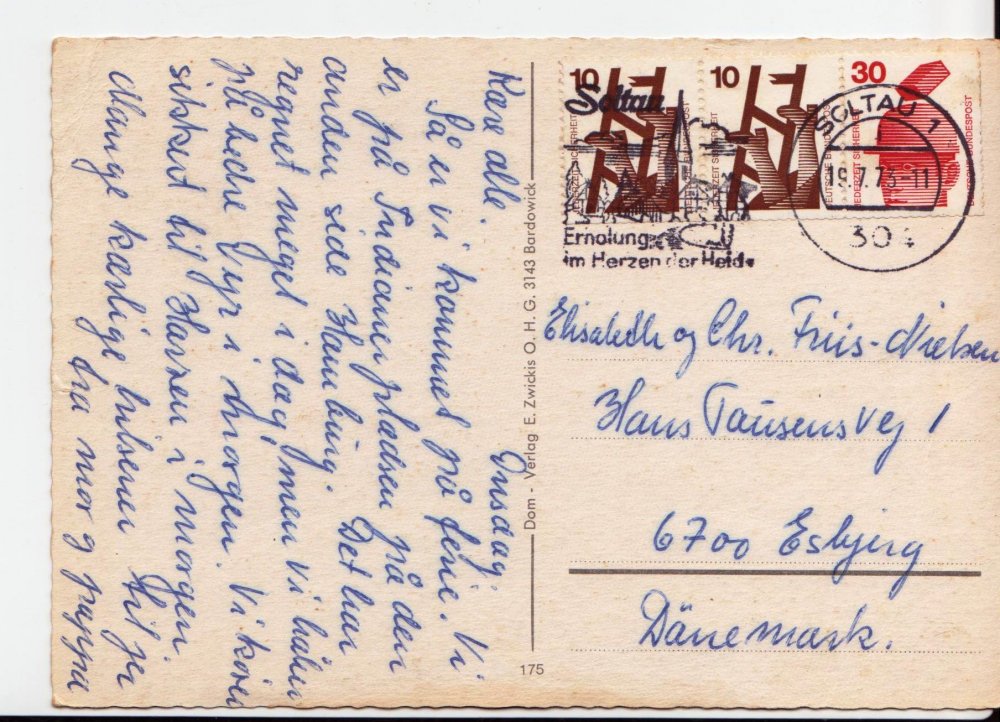 Kære alle. Onsdag.
Så er vi kommet på ferie. Vi
er på Indianerpladsen på den
anden side Hamburg. Det har
regnet meget i dag, men vi håber
på bedre vejr i morgen. Vi kører
sikkert til Harzen i morgen.
Mange kærlige hilsener til jer
fra mor og pappa
Dom - Verlag E. Zwickis O. H. G. 3143 Bardowick
175
10
10
30
DEUTSCHE BUNDESPOST
JEDERZEIT SICHERHEIT
Soltau
Erholung
im Herzen der Heide
SOLTAU 1
19.7.73-11
304
Elisabeth og Chr. Friis-Nielsen
Hans Tausensvej 1
6700 Esbjerg
Dänemark.